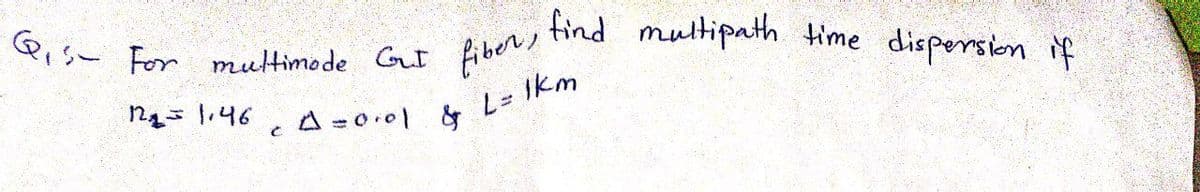 Q1:- For multimode GI fiber, find multipath time dispersion if
n1 = 1.46, Δ = 0.01 & L = 1km